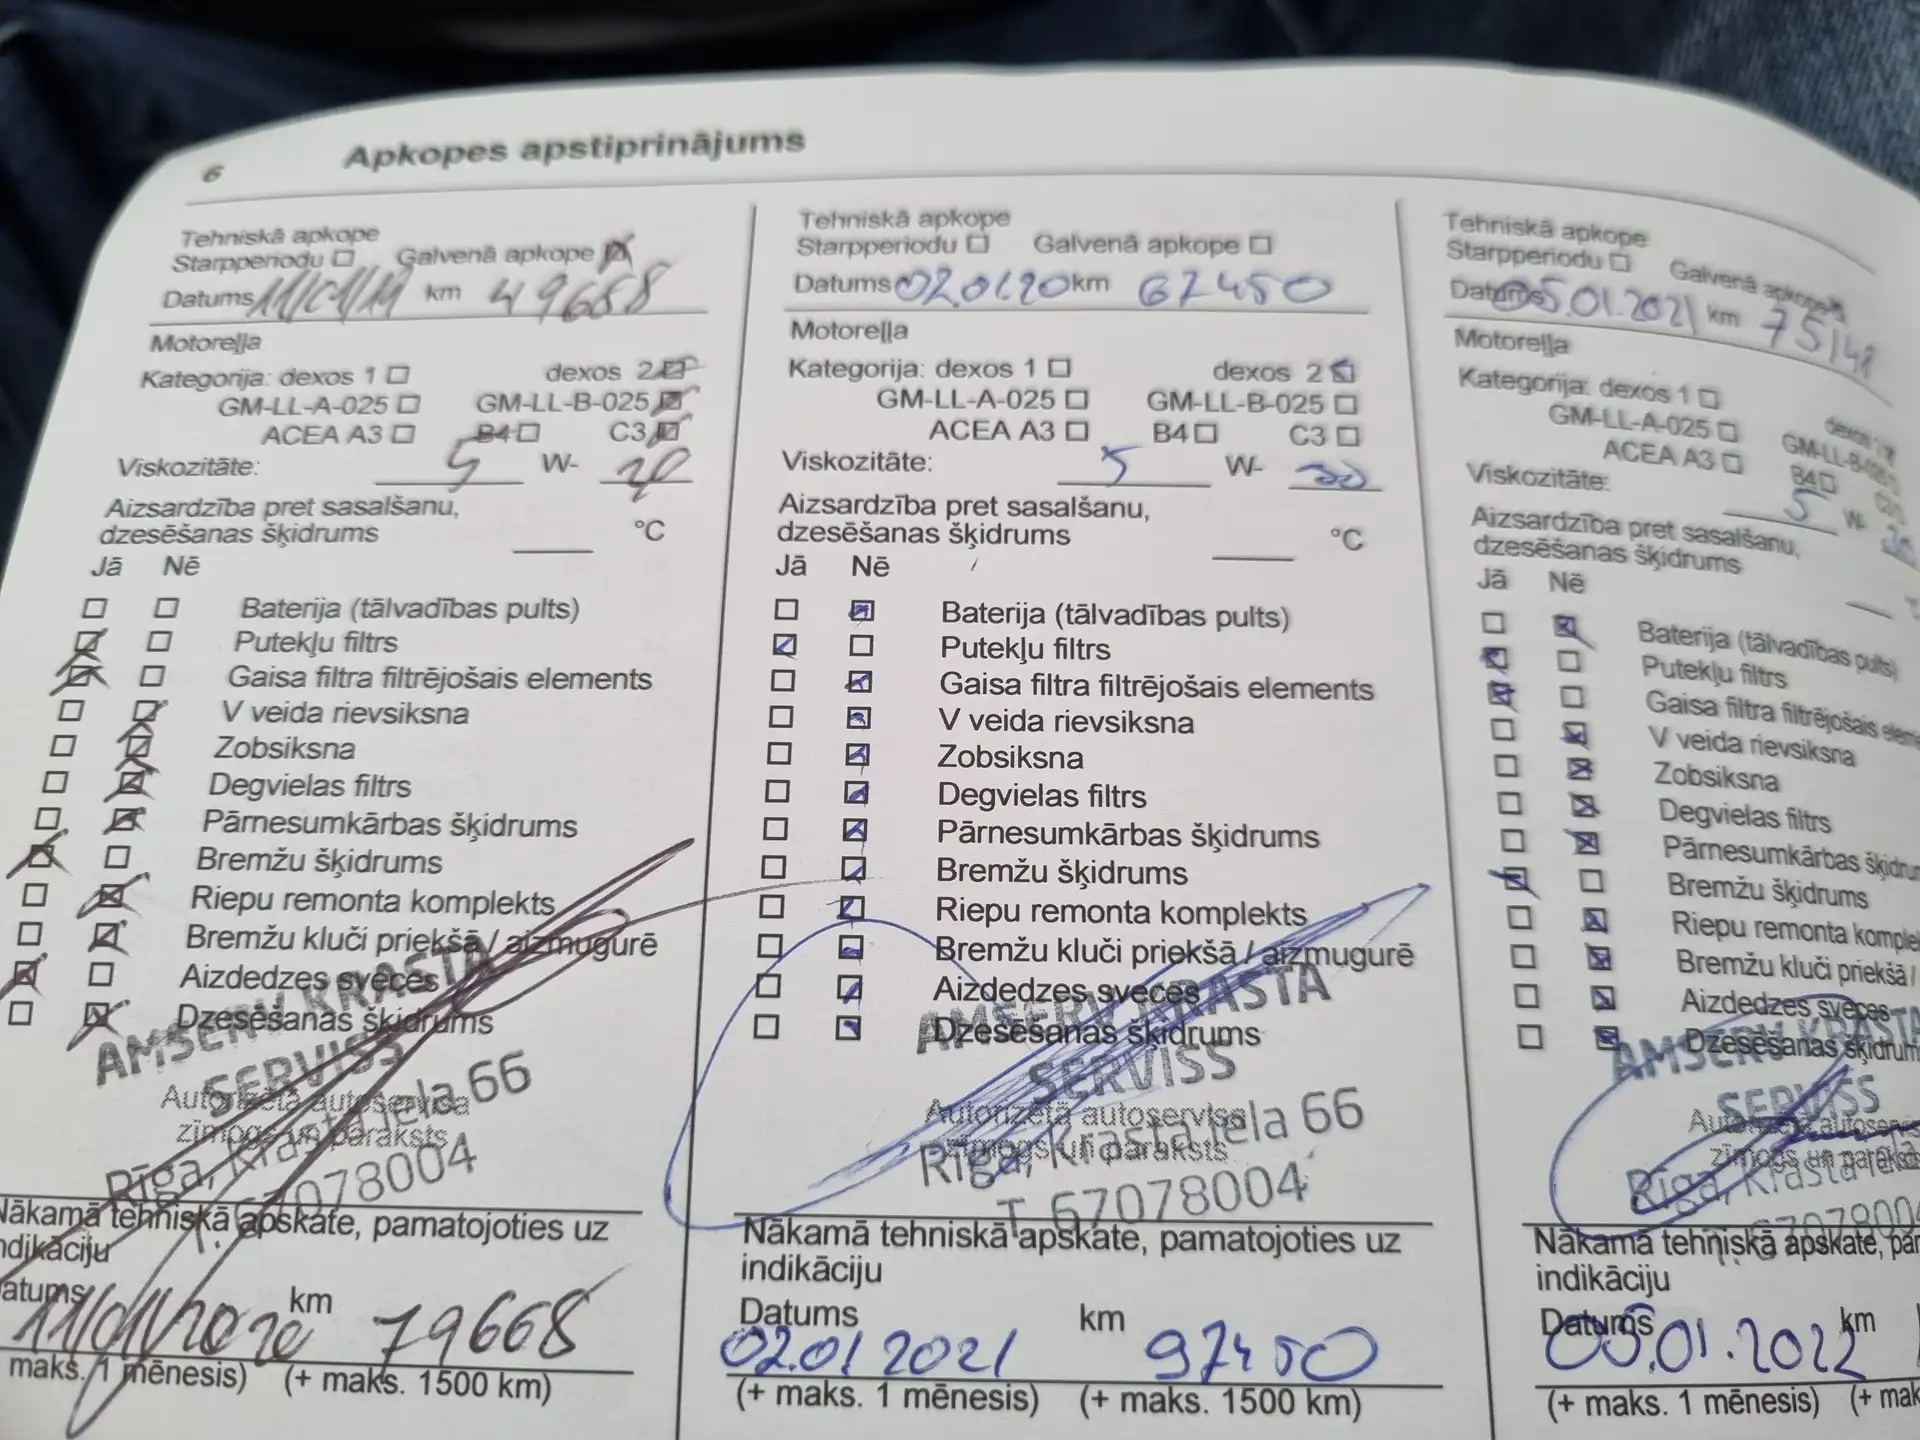 6
Apkopes apstiprinājums
Tehniskā apkope
Starpperiodu Galvenā apkope
Datums 11/01/19 km 49668
Motoreļļa
Kategorija: dexos 1 dexos 2
GM-LL-A-025 GM-LL-B-025
ACEA A3 B4 C3
Viskozitāte: 5 W-
Aizsardzība pret sasalšanu,
dzesēšanas šķidrums °C
Jā Nē
Baterija (tālvadības pults)
Putekļu filtrs
Gaisa filtra filtrējošais elements
V veida rievsiksna
Zobsiksna
Degvielas filtrs
Pārnesumkārbas šķidrums
Bremžu šķidrums
Riepu remonta komplekts
Bremžu kluči priekšā / aizmugurē
Aizdedzes sveces
Dzesēšanas šķidrums
AMSERV KRASTA
SERVISS
Autorizētā autoservisa
zīmogs un paraksts
Rīga, Krasta iela 66
T. 67078004
Nākamā tehniskā apskate, pamatojoties uz
indikāciju
Datums km
11/01/2020 79668
maks. 1 mēnesis) (+ maks. 1500 km)
Tehniskā apkope
Starpperiodu Galvenā apkope
Datums 02.01.20 km 67450
Motoreļļa
Kategorija: dexos 1 dexos 2
GM-LL-A-025 GM-LL-B-025
ACEA A3 B4 C3
Viskozitāte: 5 W- 30
Aizsardzība pret sasalšanu,
dzesēšanas šķidrums °C
Jā Nē
Baterija (tālvadības pults)
Putekļu filtrs
Gaisa filtra filtrējošais elements
V veida rievsiksna
Zobsiksna
Degvielas filtrs
Pārnesumkārbas šķidrums
Bremžu šķidrums
Riepu remonta komplekts
Bremžu kluči priekšā / aizmugurē
Aizdedzes sveces
Dzesēšanas šķidrums
AMSERV KRASTA
SERVISS
Autorizētā autoservisa
zīmogs un paraksts
Rīga, Krasta iela 66
T. 67078004
Nākamā tehniskā apskate, pamatojoties uz
indikāciju
Datums km
02.01 2021 97450
(+ maks. 1 mēnesis) (+ maks. 1500 km)
Tehniskā apkope
Starpperiodu Galvenā apkope
Datums 05.01.2021 km 75141
Motoreļļa
Kategorija: dexos 1 dexos
GM-LL-A-025 GM-LL-B-025
ACEA A3 B4
Viskozitāte: 5 W- 30
Aizsardzība pret sasalšanu,
dzesēšanas šķidrums
Jā Nē
Baterija (tālvadības pults)
Putekļu filtrs
Gaisa filtra filtrējošais eleme
V veida rievsiksna
Zobsiksna
Degvielas filtrs
Pārnesumkārbas šķidru
Bremžu šķidrums
Riepu remonta komple
Bremžu kluči priekšā /
Aizdedzes sveces
Dzesēšanas šķidrum
AMSERV KRASTA
SERVISS
Autorizētā autoserv
zīmogs un paraksts
Rīga, Krasta iela
T. 6707800
Nākamā tehniskā apskate, pa
indikāciju
Datums km
05.01.2022
(+ maks. 1 mēnesis) (+ mak